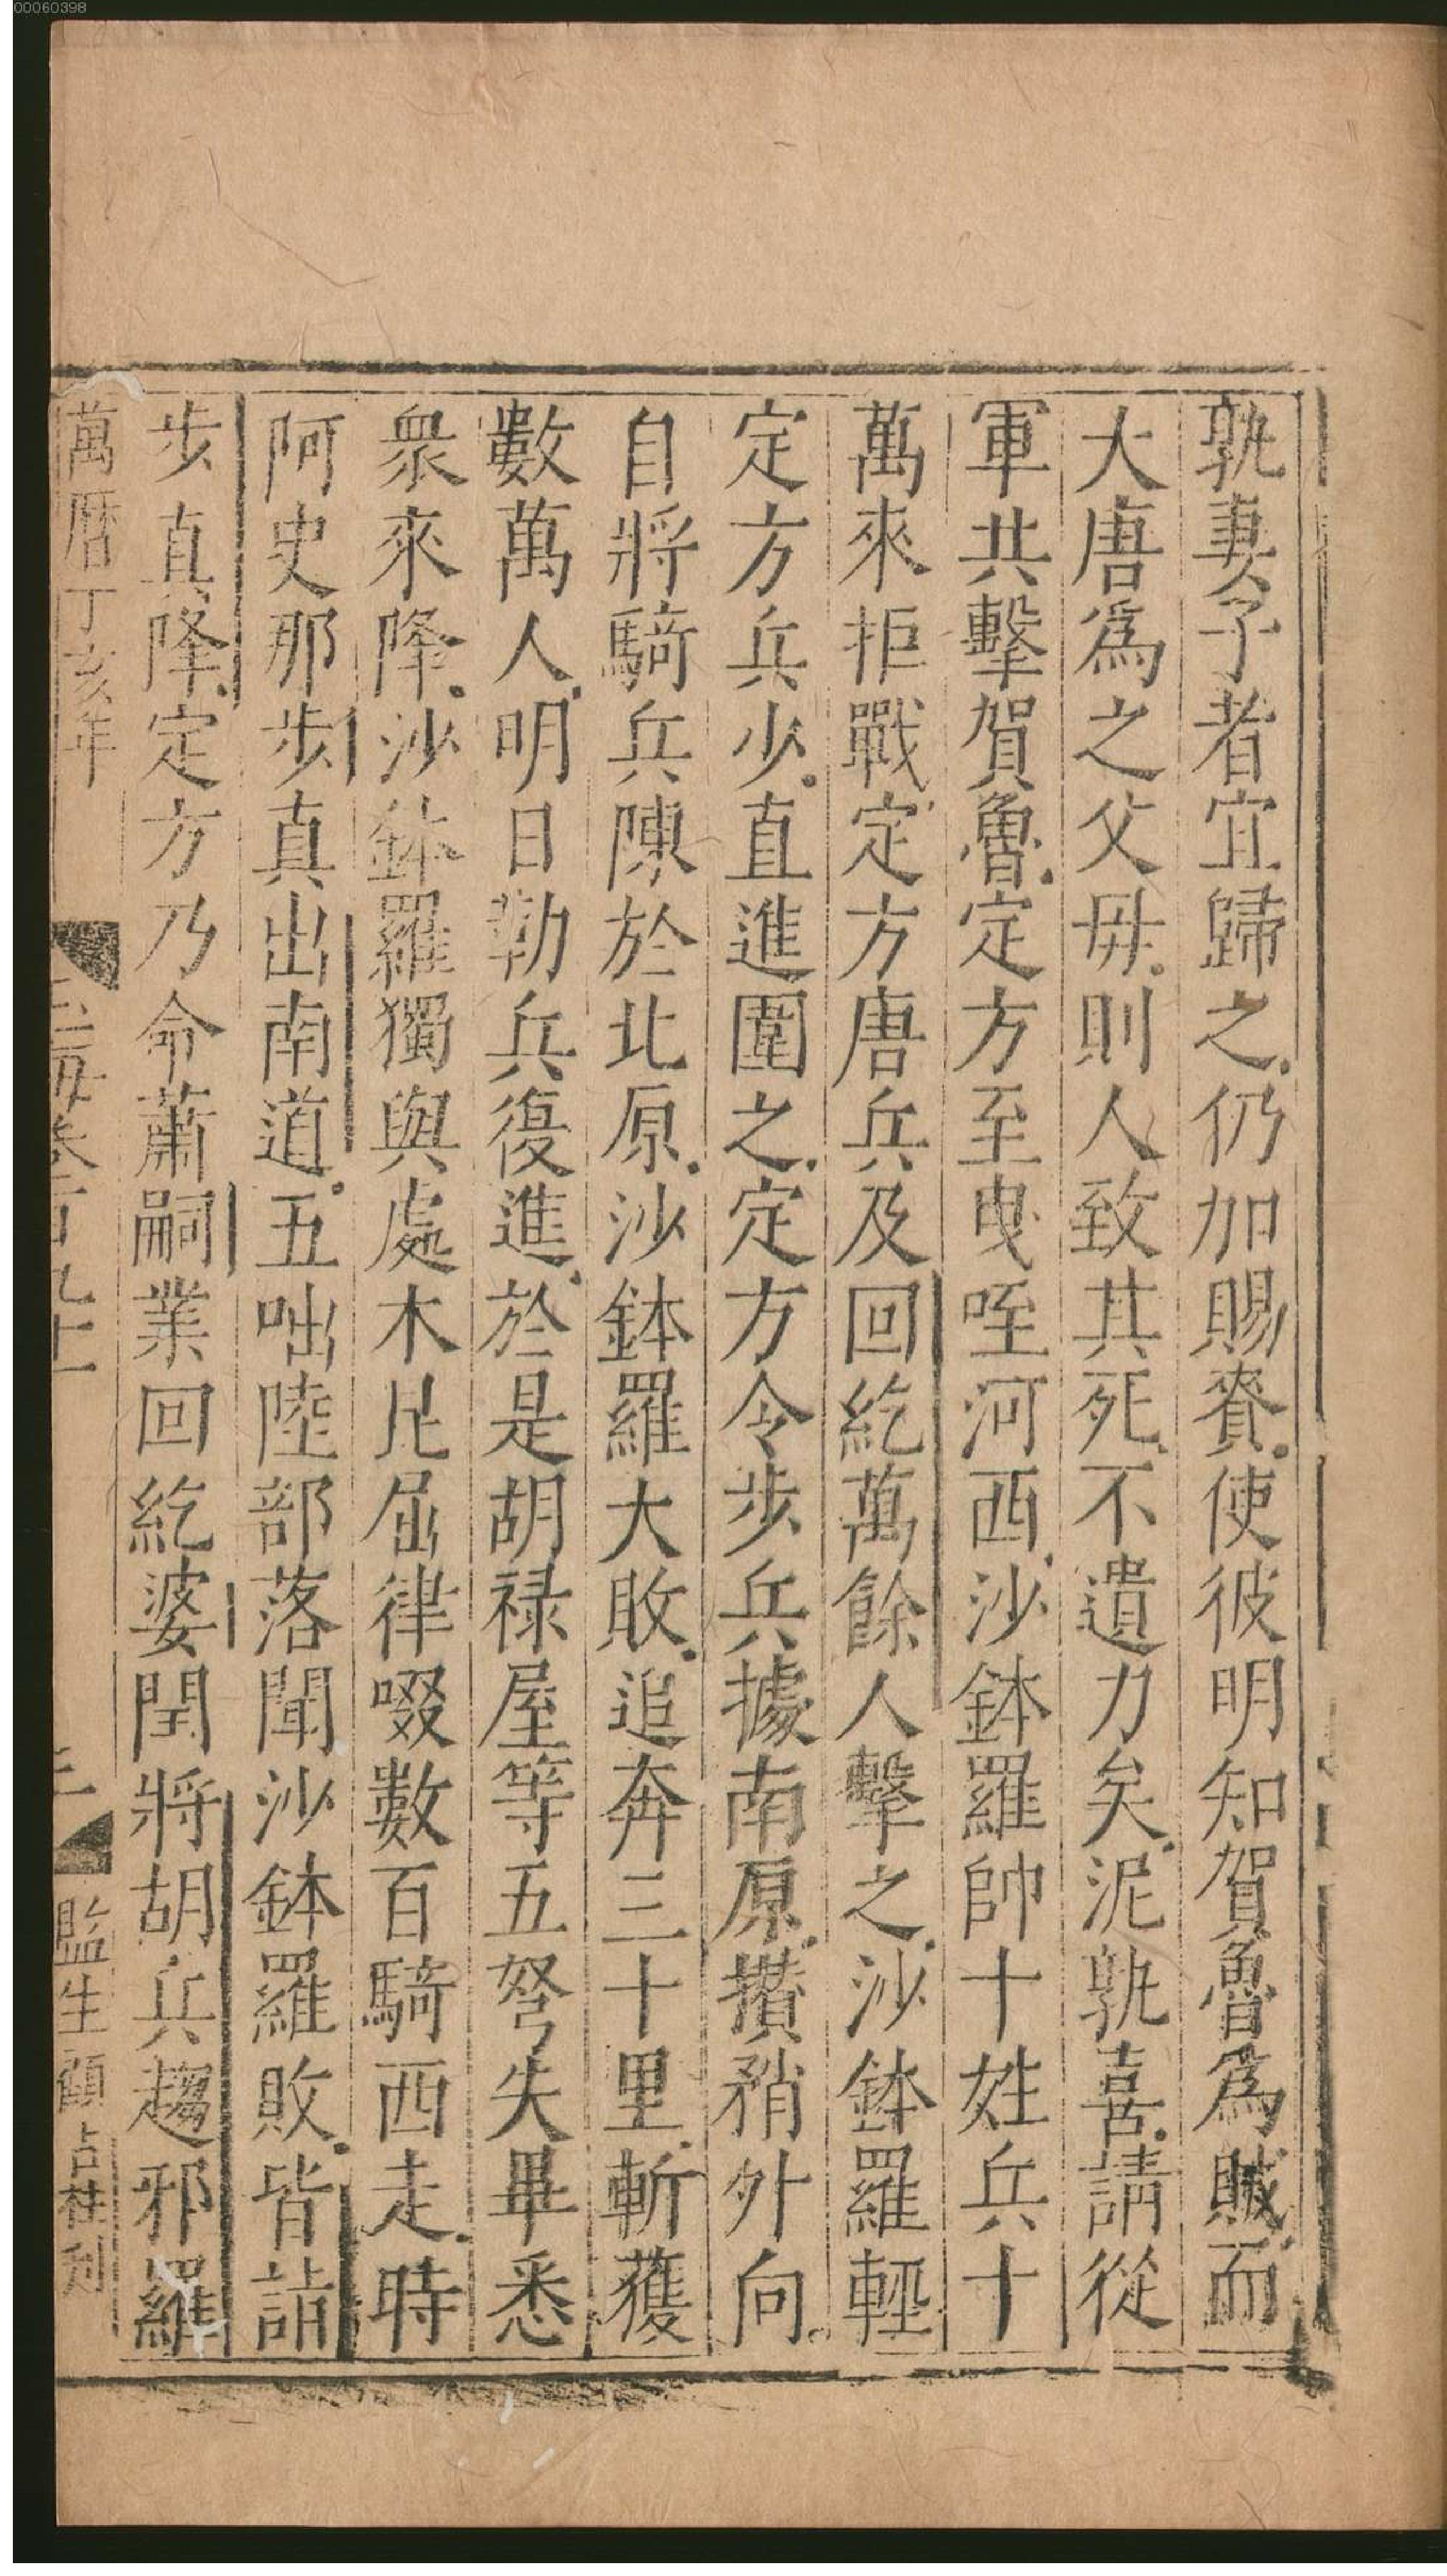 00060398
孰妻子者宜歸之仍加賜賚使彼明知賀魯爲賊而
大唐爲之父毋則人致其死不遺力矣泥孰喜請從
軍共擊賀魯定方至曳咥河西沙鉢羅帥十姓兵十
萬來拒戰定方唐兵及回紇萬餘人擊之沙鉢羅輕
定方兵少直進圍之定方令步兵據南原攅矟外向
自將騎兵陳於北原沙鉢羅大敗追奔三十里斬獲
數萬人明日勒兵復進於是胡禄屋等五弩失畢悉
衆來降沙鉢羅獨與處木昆屈律啜數百騎西走時
阿史那步真出南道五咄陸部落聞沙鉢羅敗皆詣
步真降定方乃命蕭嗣業回紇婆閏將胡兵趨邪羅
萬曆丁亥年
玉海卷一百九十一
監生顧占桂刋